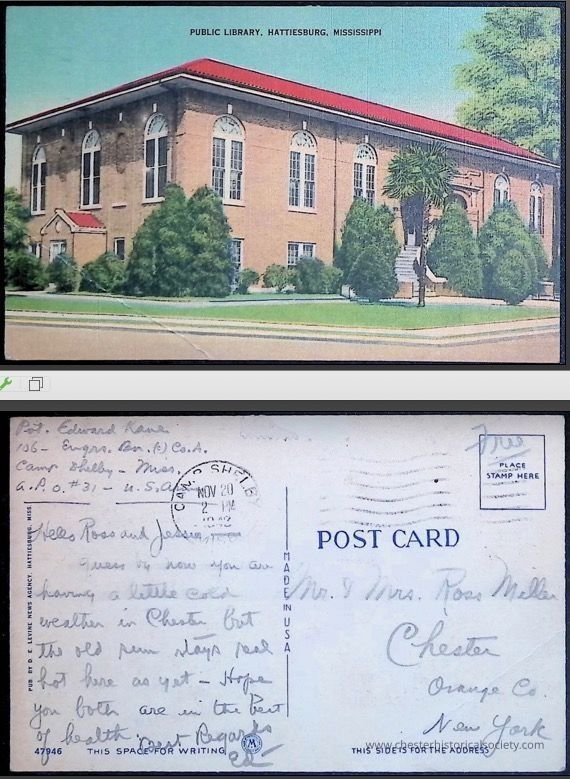 PUBLIC LIBRARY, HATTIESBURG, MISSISSIPPI
Pvt. Edward Kane
106 - Engrs. Bn. (C) Co. A.
Camp Shelby - Miss.
A.P.O. #31 - U.S. Army
Free
PLACE
STAMP HERE
CAMP SHELBY
NOV 20
2 - PM
1942
POST CARD
MADE IN USA
PUB BY D. E. LEVINE NEWS AGENCY, HATTIESBURG, MISS.
Hello Ross and Jessie
Guess by now you are
having a little cold
weather in Chester but
the old sun stays real
hot here as yet - Hope
you both are in the best
of health Best Regards
Ed -
Mr. & Mrs. Ross Miller
Chester
Orange Co.
New York
47946
THIS SPACE FOR WRITING
THIS SIDE IS FOR THE ADDRESS
www.chesterhistoricalsociety.com